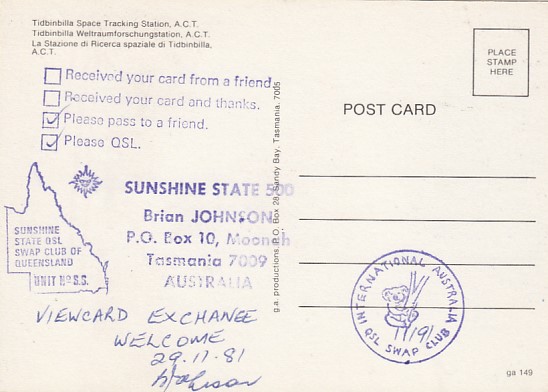 Tidbinbilla Space Tracking Station, A.C.T.
Tidbinbilla Weltraumforschungstation, A.C.T.
La Stazione di Ricerca spaziale di Tidbinbilla,
A.C.T.
PLACE
STAMP
HERE
Received your card from a friend.
Received your card and thanks.
Please pass to a friend.
Please QSL.
POST CARD
g.a. productions. P.O. Box 28, Sandy Bay, Tasmania. 7005
SUNSHINE STATE 500
Brian JOHNSON
P.O. Box 10, Moonah
Tasmania 7009
AUSTRALIA
SUNSHINE
STATE QSL
SWAP CLUB OF
QUEENSLAND
UNIT No S.S.
INTERNATIONAL AUSTRALIA
QSL SWAP CLUB
VIEWCARD EXCHANGE
WELCOME
29.11.81
ga 149